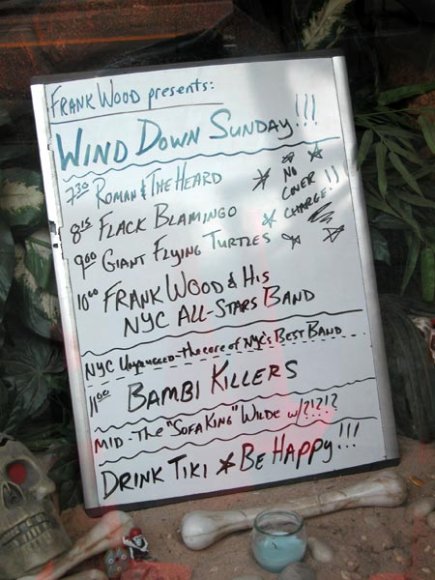 FRANK WOOD presents:
WIND DOWN SUNDAY!!!
7:30 ROMAN & THE HEARD
NO COVER CHARGE!!
8:15 FLACK BLAMINGO
9:00 GIANT FLYING TURTLES
10:00 FRANK WOOD & HIS
NYC ALL-STARS BAND
NYC Unplugged-the core of NYC's BEST BAND
11:00 BAMBI KILLERS
MID-THE "SOFA KING" WILDE w/?!?!?
DRINK TIKI ★ BE HAPPY!!!